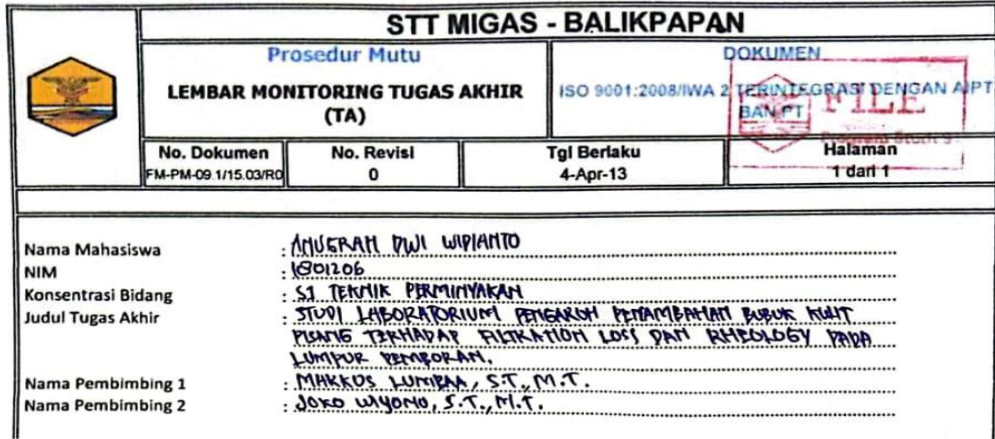 STT MIGAS - BALIKPAPAN
Prosedur Mutu
DOKUMEN
LEMBAR MONITORING TUGAS AKHIR
(TA)
ISO 9001:2008/IWA 2 TERINTEGRASI DENGAN AIPT
BAN PT
FILE
No. Dokumen
No. Revisi
Tgl Berlaku
Halaman
FM-PM-09.1/15.03/R0
0
4-Apr-13
1 dari 1
Nama Mahasiswa : ANUGRAH DWI WIDIANTO
NIM : 1801206
Konsentrasi Bidang : S1 TEKNIK PERMINYAKAN
Judul Tugas Akhir : STUDI LABORATORIUM PENGARUH PENAMBAHAN BUBUK KULIT
PISANG TERHADAP FILTRATION LOSS DAN RHEOLOGY PADA
LUMPUR PEMBORAN.
Nama Pembimbing 1 : , S.T., M.T.
Nama Pembimbing 2 : JOKO WIYONO, S.T., M.T.